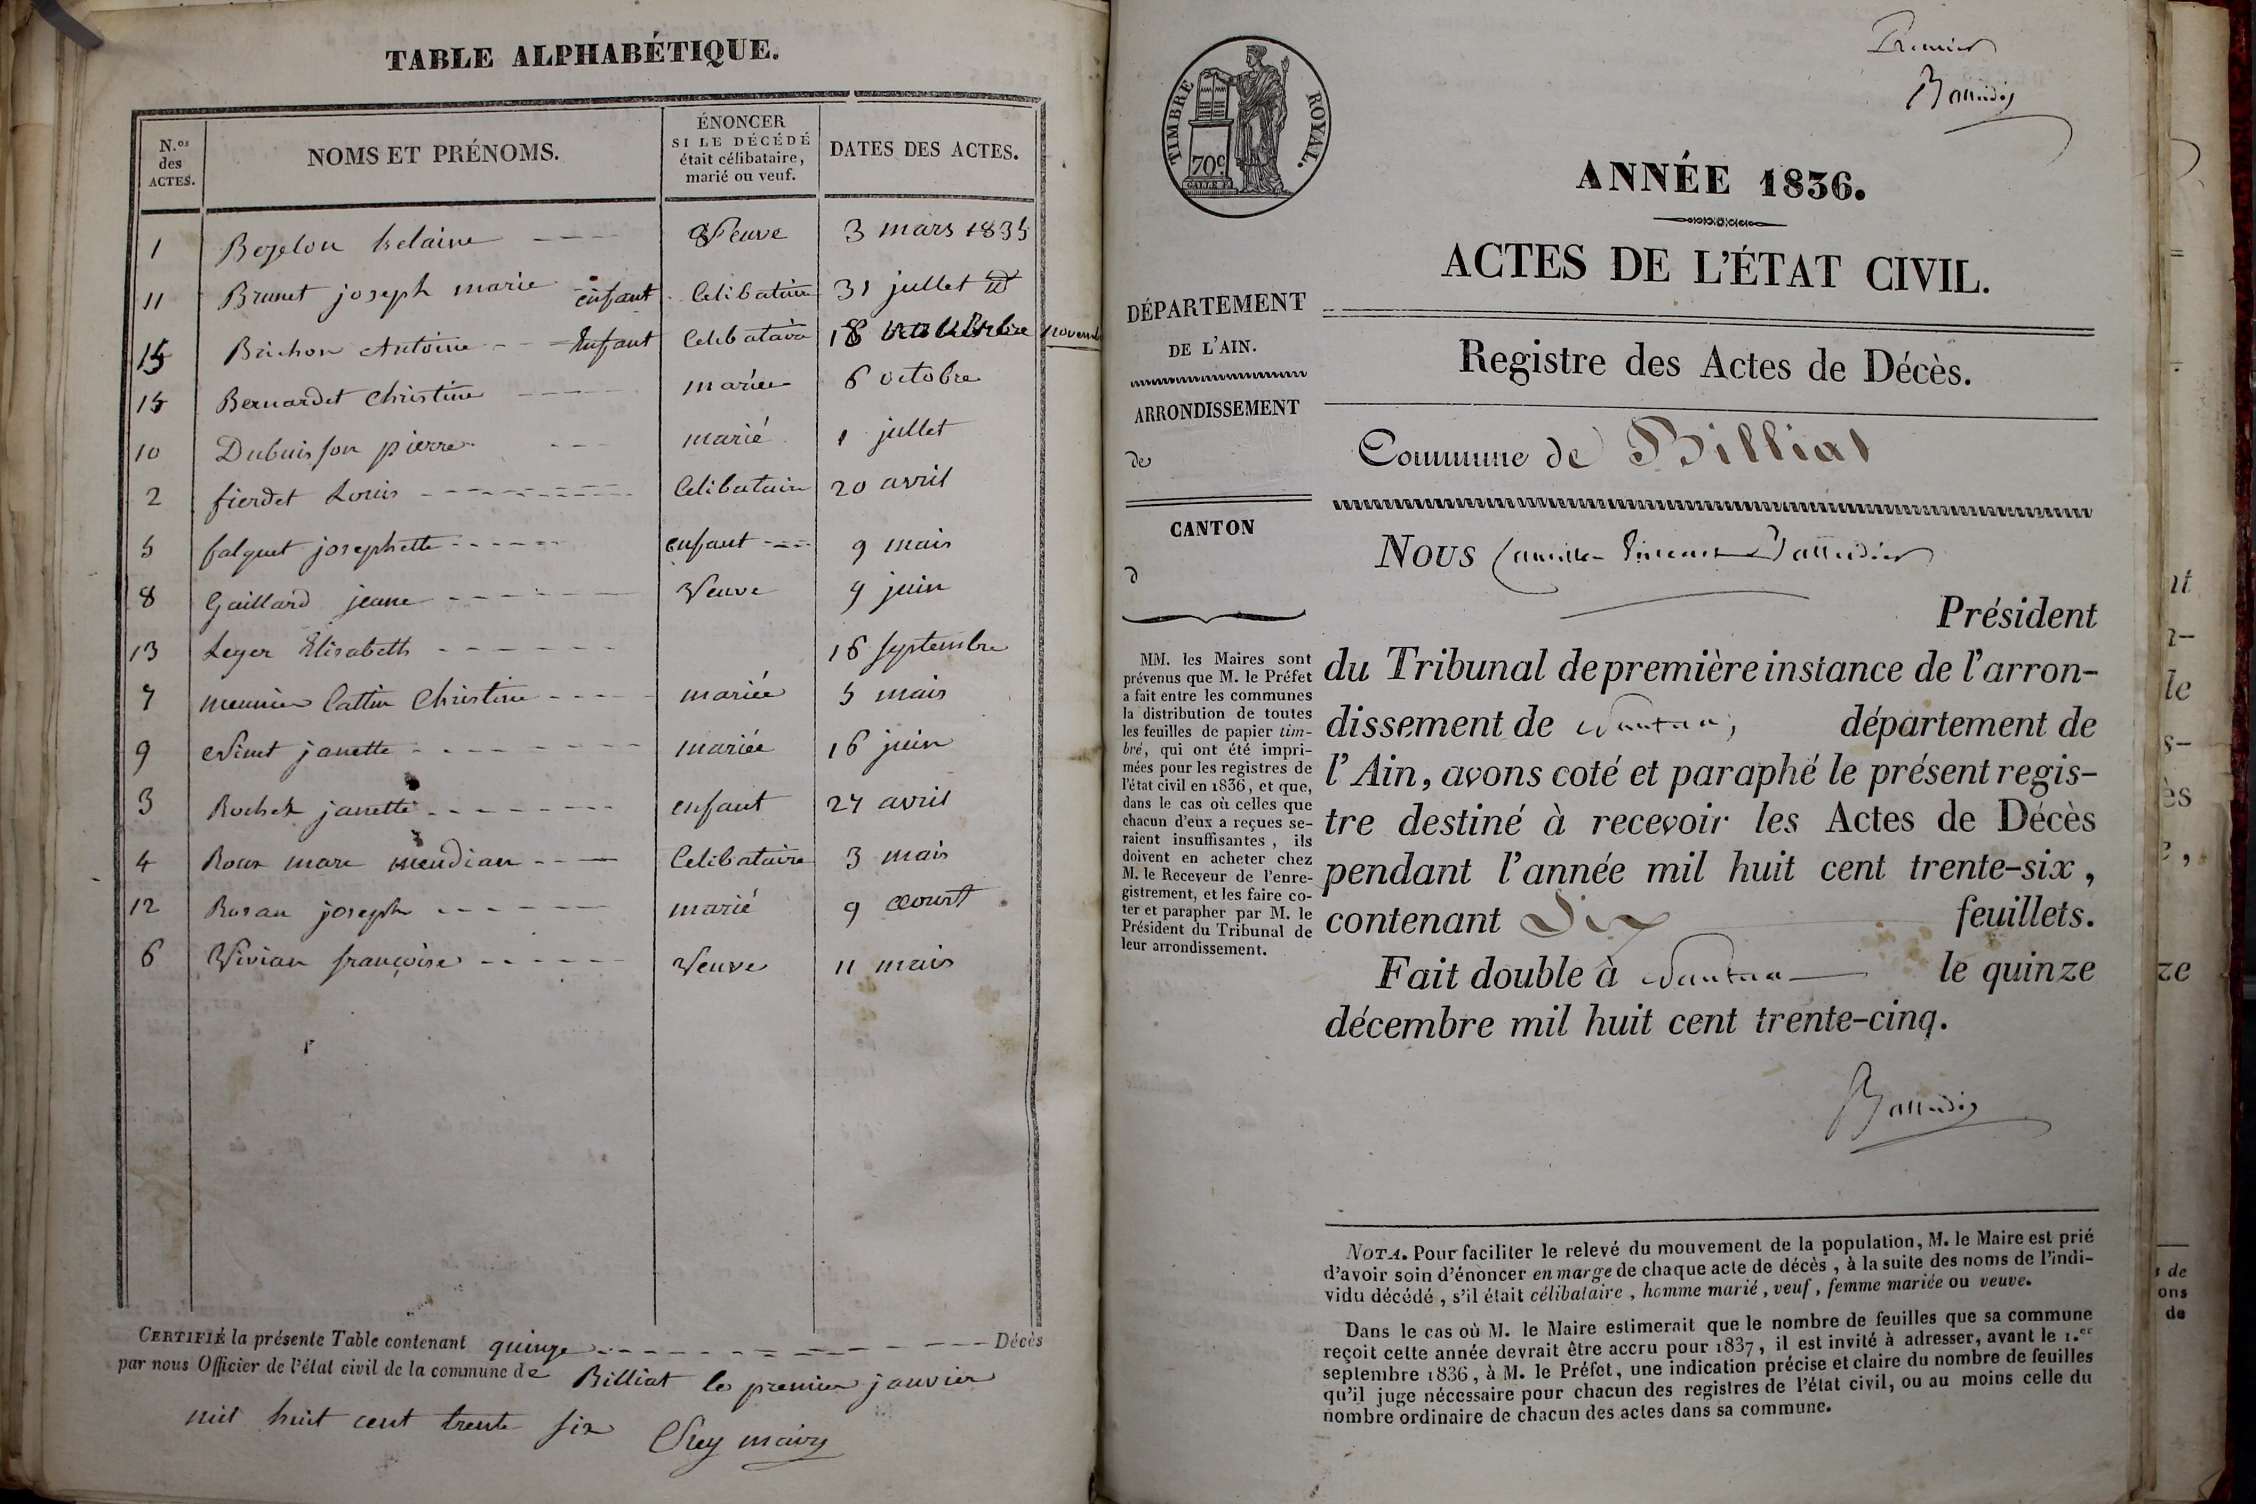 TABLE ALPHABÉTIQUE.
N.os des ACTES.
NOMS ET PRÉNOMS.
ÉNONCER SI LE DÉCÉDÉ était célibataire, marié ou veuf.
DATES DES ACTES.
1 Bezelon helaine Veuve 3 mars 1835
11 Brunet joseph marie enfant Celibataire 31 jullet
15 Brichon Antoine Enfant Celibataire 18 novemb
15 Bernardet Christine mariée 6 octobre
10 Dubuisson pierre marié 1 jullet
2 fierdet Louis Celibataire 20 avril
5 falquet josephette enfant 9 mais
8 Gaillard jeane Veuve 9 juin
13 Leger Elisabeth 16 septembre
7 meunier Cattin Christine mariée 5 mais
9 Ninet janette mariée 16 juin
3 Rochet janette enfant 27 avril
4 Roux marc mendian Celibataire 3 mais
12 Rosan joseph marié 9 aoust
6 Vivian françoise Veuve 11 mais
CERTIFIÉ la présente Table contenant quinze Décès
par nous Officier de l'état civil de la commune de Billiat le premier janvier
mil huit cent trente six Rey maire
Premier
TIMBRE ROYAL.
70c
ANNÉE 1836.
ACTES DE L'ÉTAT CIVIL.
Registre des Actes de Décès.
Commune de Billiat
DÉPARTEMENT
DE L'AIN.
ARRONDISSEMENT
de
CANTON
d
MM. les Maires sont
prévenus que M. le Préfet
a fait entre les communes
la distribution de toutes
les feuilles de papier tim-
bré, qui ont été impri-
mées pour les registres de
l'état civil en 1836, et que,
dans le cas où celles que
chacun d'eux a reçues se-
raient insuffisantes, ils
doivent en acheter chez
M. le Receveur de l'enre-
gistrement, et les faire co-
ter et parapher par M. le
Président du Tribunal de
leur arrondissement.
NOUS Camille Vincent
Président
du Tribunal de première instance de l'arron-
dissement de Nantua, département de
l'Ain, avons coté et paraphé le présent regis-
tre destiné à recevoir les Actes de Décès
pendant l'année mil huit cent trente-six,
contenant Six feuillets.
Fait double à Nantua le quinze
décembre mil huit cent trente-cinq.
NOTA. Pour faciliter le relevé du mouvement de la population, M. le Maire est prié
d'avoir soin d'énoncer en marge de chaque acte de décès, à la suite des noms de l'indi-
vidu décédé, s'il était célibataire, homme marié, veuf, femme mariée ou veuve.
Dans le cas où M. le Maire estimerait que le nombre de feuilles que sa commune
reçoit cette année devrait être accru pour 1837, il est invité à adresser, avant le 1.er
septembre 1836, à M. le Préfet, une indication précise et claire du nombre de feuilles
qu'il juge nécessaire pour chacun des registres de l'état civil, ou au moins celle du
nombre ordinaire de chacun des actes dans sa commune.